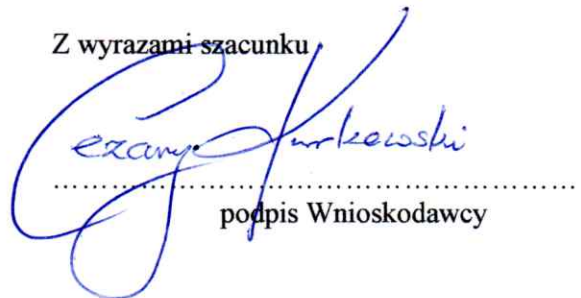 Z wyrazami szacunku
Cezary Kurkowski
........................................................
podpis Wnioskodawcy